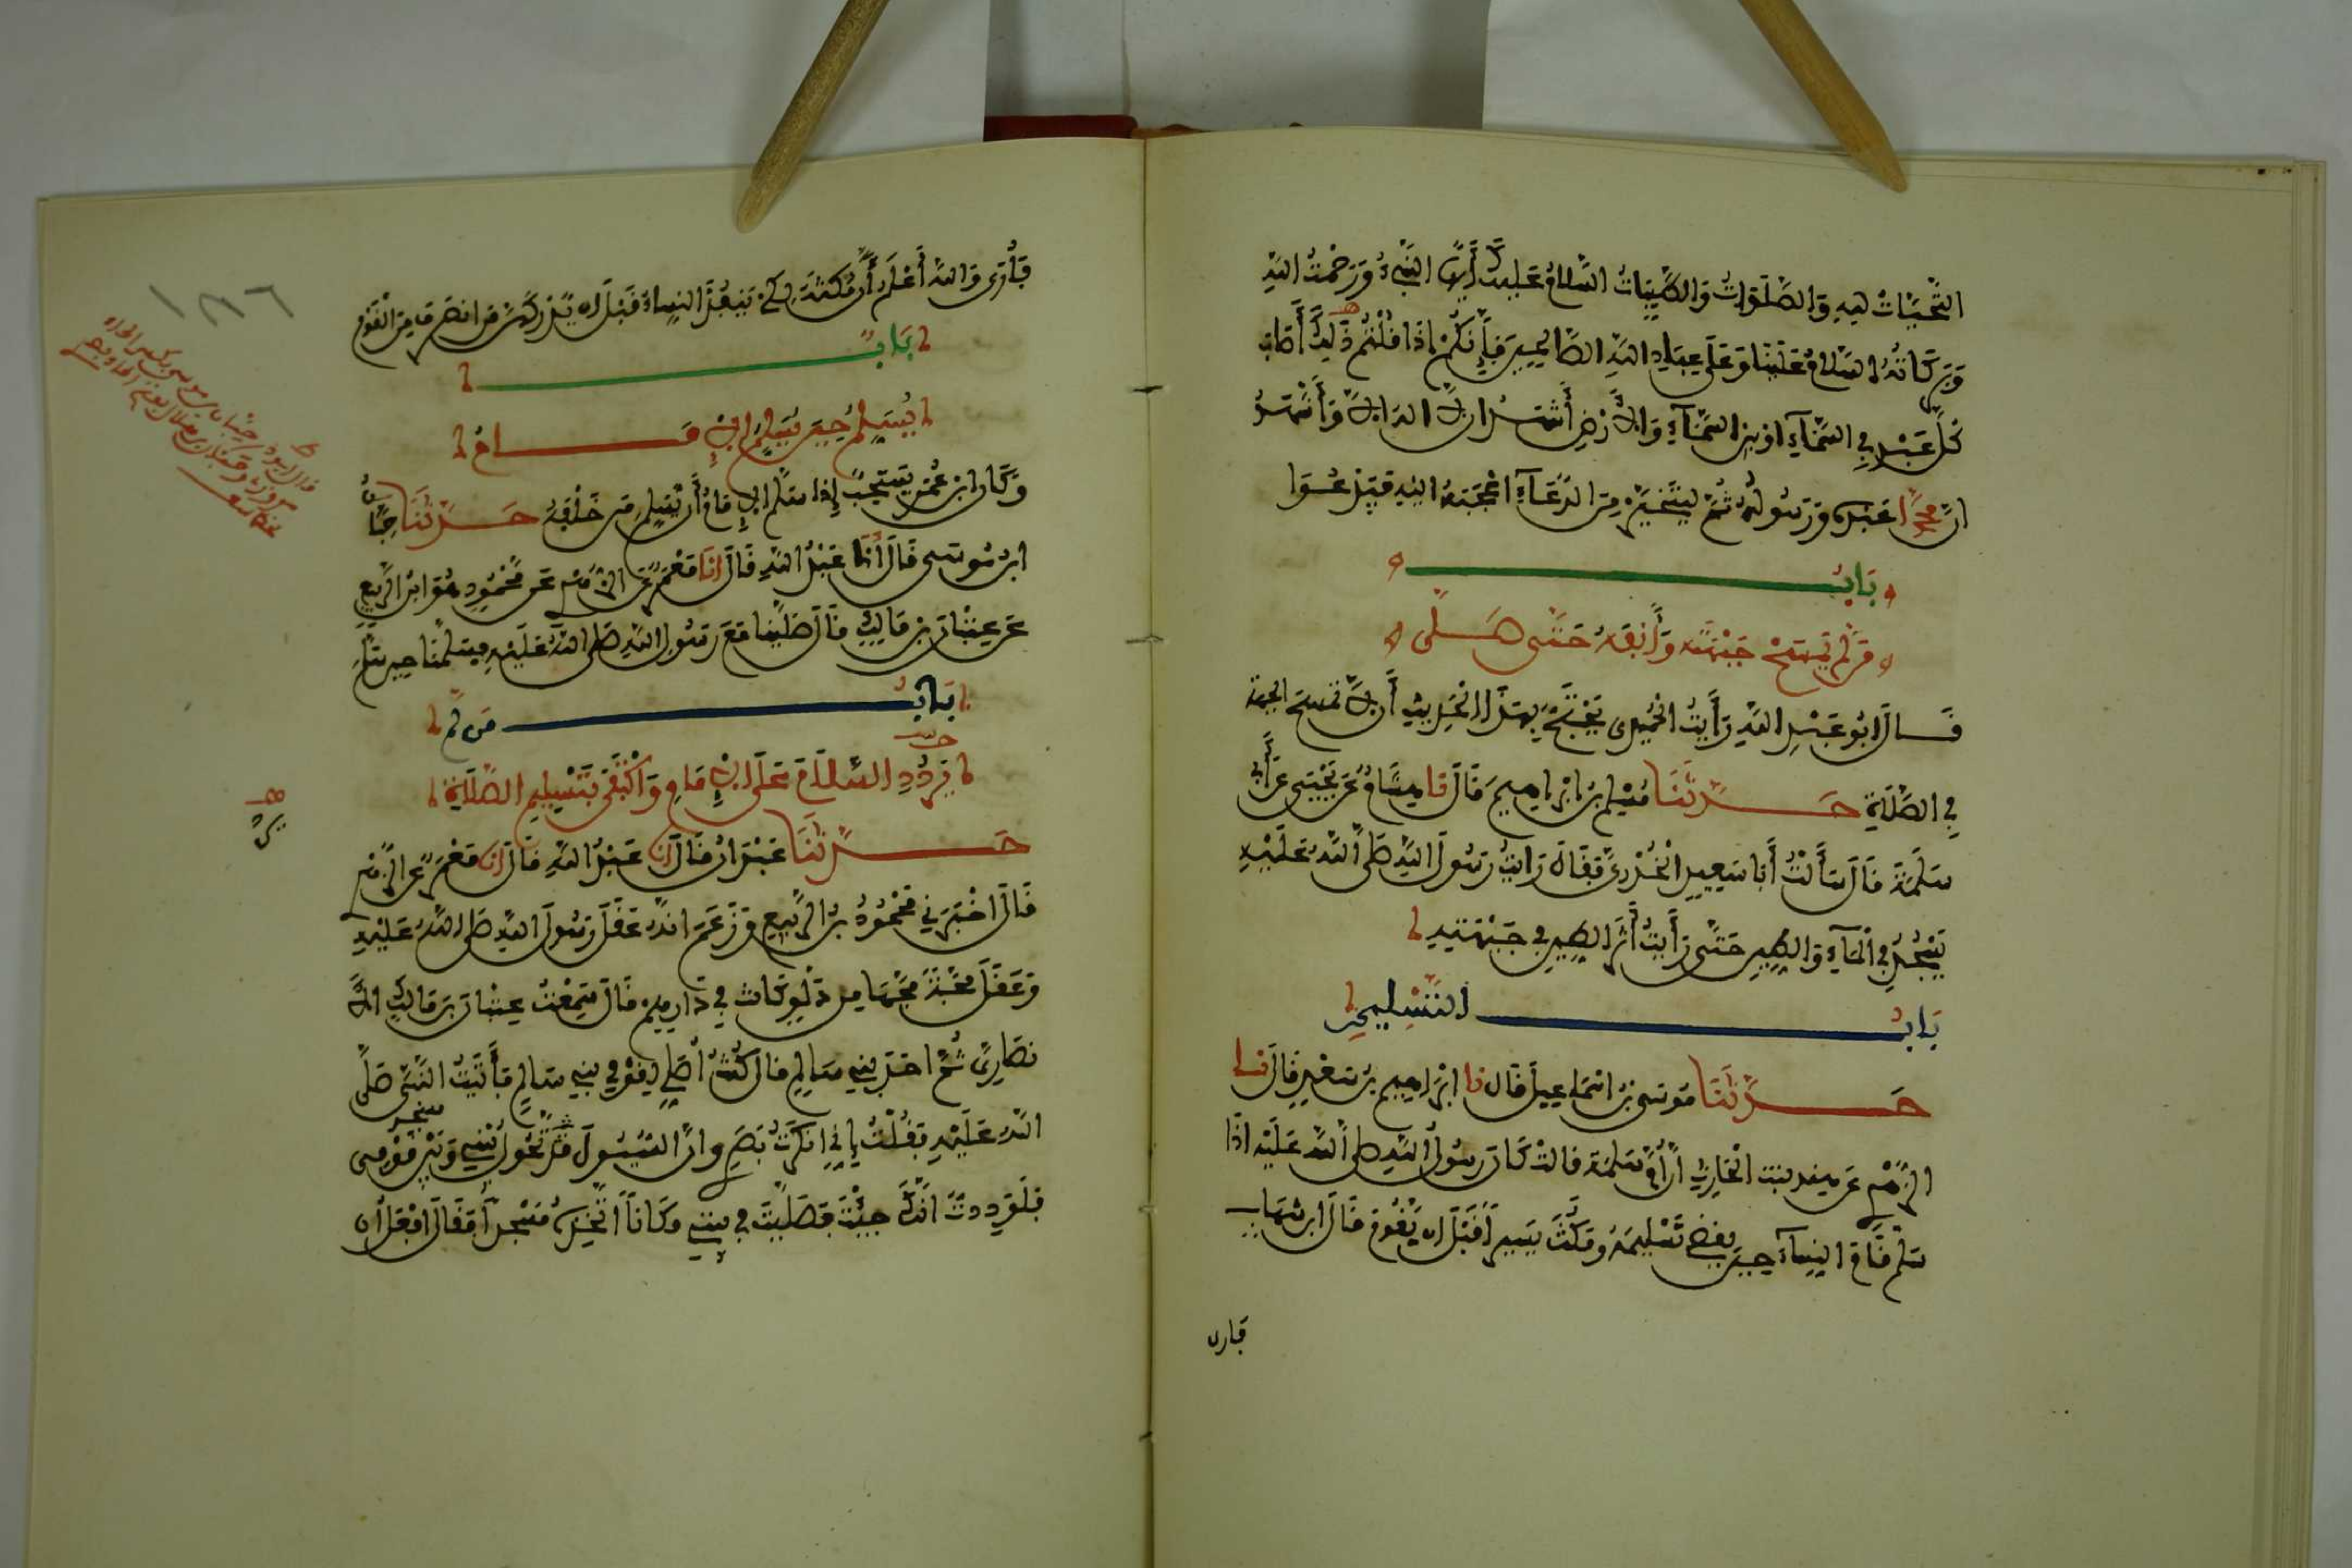 التَّحِيَّاتُ لِلهِ وَالصَّلَوَاتُ وَالطَّيِّبَاتُ السَّلَامُ عَلَيْكَ أَيُّهَا النَّبِيُّ وَرَحْمَتُ اللهِ
وَبَرَكَاتُهُ السَّلَامُ عَلَيْنَا وَعَلَى عِبَادِ اللهِ الصَّالِحِينَ فَإِنَّكُمْ إِذَا قُلْتُمْ ذَلِكَ أَصَابَ
كُلَّ عَبْدٍ فِي السَّمَاءِ أَوْ بَيْنَ السَّمَاءِ وَالْأَرْضِ أَشْهَدُ أَن لَّا إِلَهَ إِلَّا اللهُ وَأَشْهَدُ
أَنَّ مُحَمَّدًا عَبْدُهُ وَرَسُولُهُ ثُمَّ لْيَتَخَيَّرْ مِنَ الدُّعَاءِ أَعْجَبَهُ إِلَيْهِ فَيَدْعُوا
بَابُ
مَن لَّمْ يَمْسَحْ جَبْهَتَهُ وَأَنْفَهُ حَتَّى صَلَّى
قَالَ أَبُو عَبْدِ اللهِ رَأَيْتُ الْحُمَيْدِي يَحْتَجُّ بِهَذَا الْحَدِيثِ أَن لَّا تُمْسَحَ الْجَبْهَةُ
فِي الصَّلَاةِ حَدَّثَنَا مُسْلِمُ بْنُ إِبْرَاهِيمَ قَالَ نَا هِشَامٌ عَنْ يَحْيَى عَنْ أَبِي
سَلَمَةَ قَالَ سَأَلْتُ أَبَا سَعِيدٍ الْخُدْرِيَّ فَقَالَ رَأَيْتُ رَسُولَ اللهِ صَلَّى اللهُ عَلَيْهِ
يَسْجُدُ فِي الْمَاءِ وَالطِّينِ حَتَّى رَأَيْتُ أَثَرَ الطِّينِ فِي جَبْهَتِهِ
بَابُ التَّسْلِيمِ
حَدَّثَنَا مُوسَى بْنُ إِسْمَاعِيلَ قَالَ نا إِبْرَاهِيمُ بْنُ سَعْدٍ قَالَ نا
الزُّهْرِي عَن هِندٍ بِنْتِ الْحَارِثِ أَنَّ أُمَّ سَلَمَةَ قَالَتْ كَانَ رَسُولُ اللهِ صَلَّى اللهُ عَلَيْهِ إِذَا
سَلَّمَ قَامَ النِّسَاءُ حِينَ يَقْضِي تَسْلِيمَهُ وَمَكَثَ يَسِيرًا قَبْلَ أَن يَّقُومَ قَالَ ابْنُ شِهَابٍ
فَأرى
فَأُرَى وَاللهُ أَعْلَمُ أَنَّ مُكْثَهُ لِكَيْ يَنْفُذَ النِّسَاءُ قَبْلَ أَن يُدْرِكَهُنَّ مَنِ انْصَرَفَ مِنَ الْقَوْمِ
بَابٌ
يُسَلِّمُ حِينَ يُسَلِّمُ الْإِمَامُ
وَكَانَ ابْنُ عُمَرَ يَسْتَحِبُّ إِذَا سَلَّمَ الْإِمَامُ أَن يُّسَلِّمَ مَن خَلْفَهُ حَدَّثَنَا حِبَّانُ
ابْنُ مُوسَى قَالَ أَنَا عَبْدُ اللهِ قَالَ أَنَا مَعْمَرٌ عَنِ الزُّهْرِي عَن مَّحْمُودٍ هُوَ ابْنُ الرَّبِيعِ
عَن عِتْبَانَ بْنِ مَالِكٍ قَالَ صَلَّيْنَا مَعَ رَسُولِ اللهِ صَلَّى اللهُ عَلَيْهِ فَسَلَّمْنَا حِينَ سَلَّمَ
بَابُ مَن لَّمْ
يَرْدُدِ السَّلَامَ عَلَى الْإِمَامِ وَاكْتَفَى بِتَسْلِيمِ الصَّلَاةِ
حَدَّثَنَا عَبْدَانُ قَالَ أَنَا عَبْدُ اللهِ قَالَ أَنَا مَعْمَرٌ عَنِ الزُّهْرِي
قَالَ أَخْبَرَنِي مَحْمُودُ بْنُ الرَّبِيعِ وَزَعَمَ أَنَّهُ عَقَلَ رَسُولَ اللهِ صَلَّى اللهُ عَلَيْهِ
وَعَقَلَ مَجَّةً مَجَّهَا مِن دَلْوٍ كَانَتْ فِي دَارِهِمْ قَالَ سَمِعْتُ عِتْبَانَ بْنَ مَالِكٍ الْأَ
نْصَارِيَّ ثُمَّ أَحَدَ بَنِي سَالِمٍ قَالَ كُنْتُ أُصَلِّي لِقَوْمِي بَنِي سَالِمٍ فَأَتَيْتُ النَّبِيَّ صَلَّى
اللهُ عَلَيْهِ فَقُلْتُ إِنِّي أَنْكَرْتُ بَصَرِي وَإِنَّ السُّيُولَ تَحُولُ بَيْنِي وَبَيْنَ مَسْجِدِ قَوْمِي
فَلَوَدِدتُّ أَنَّكَ جِئْتَ فَصَلَّيْتَ فِي بَيْتِي مَكَانًا أَتَّخِذُهُ مَسْجِدًا فَقَالَ أَفْعَلُ إِن
١٨٦